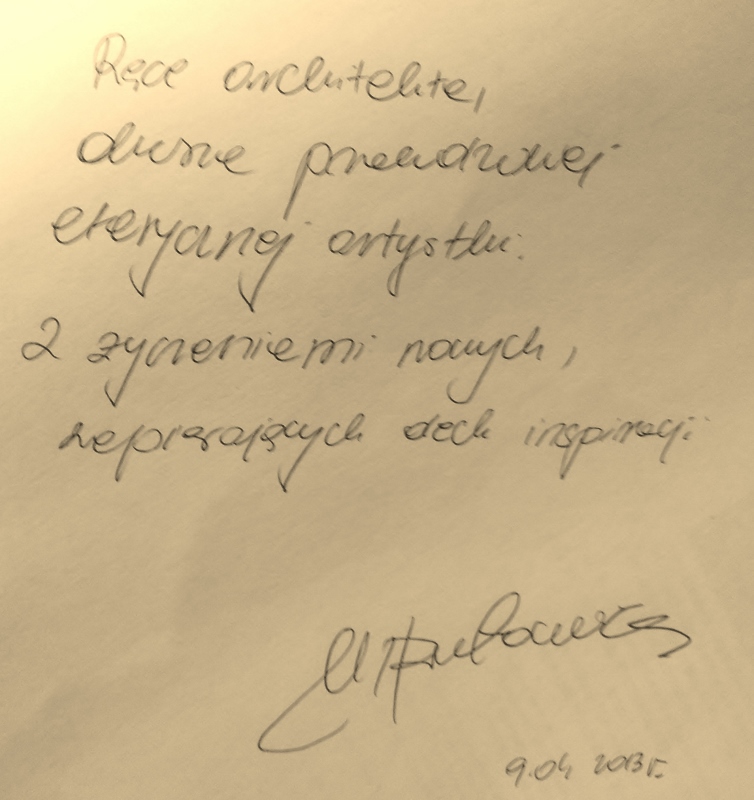 Ręce architekta,
dusza prawdziwej
eterycznej artystki.
Z życzeniami nowych,
zapierających dech inspiracji
9.04 2013 r.